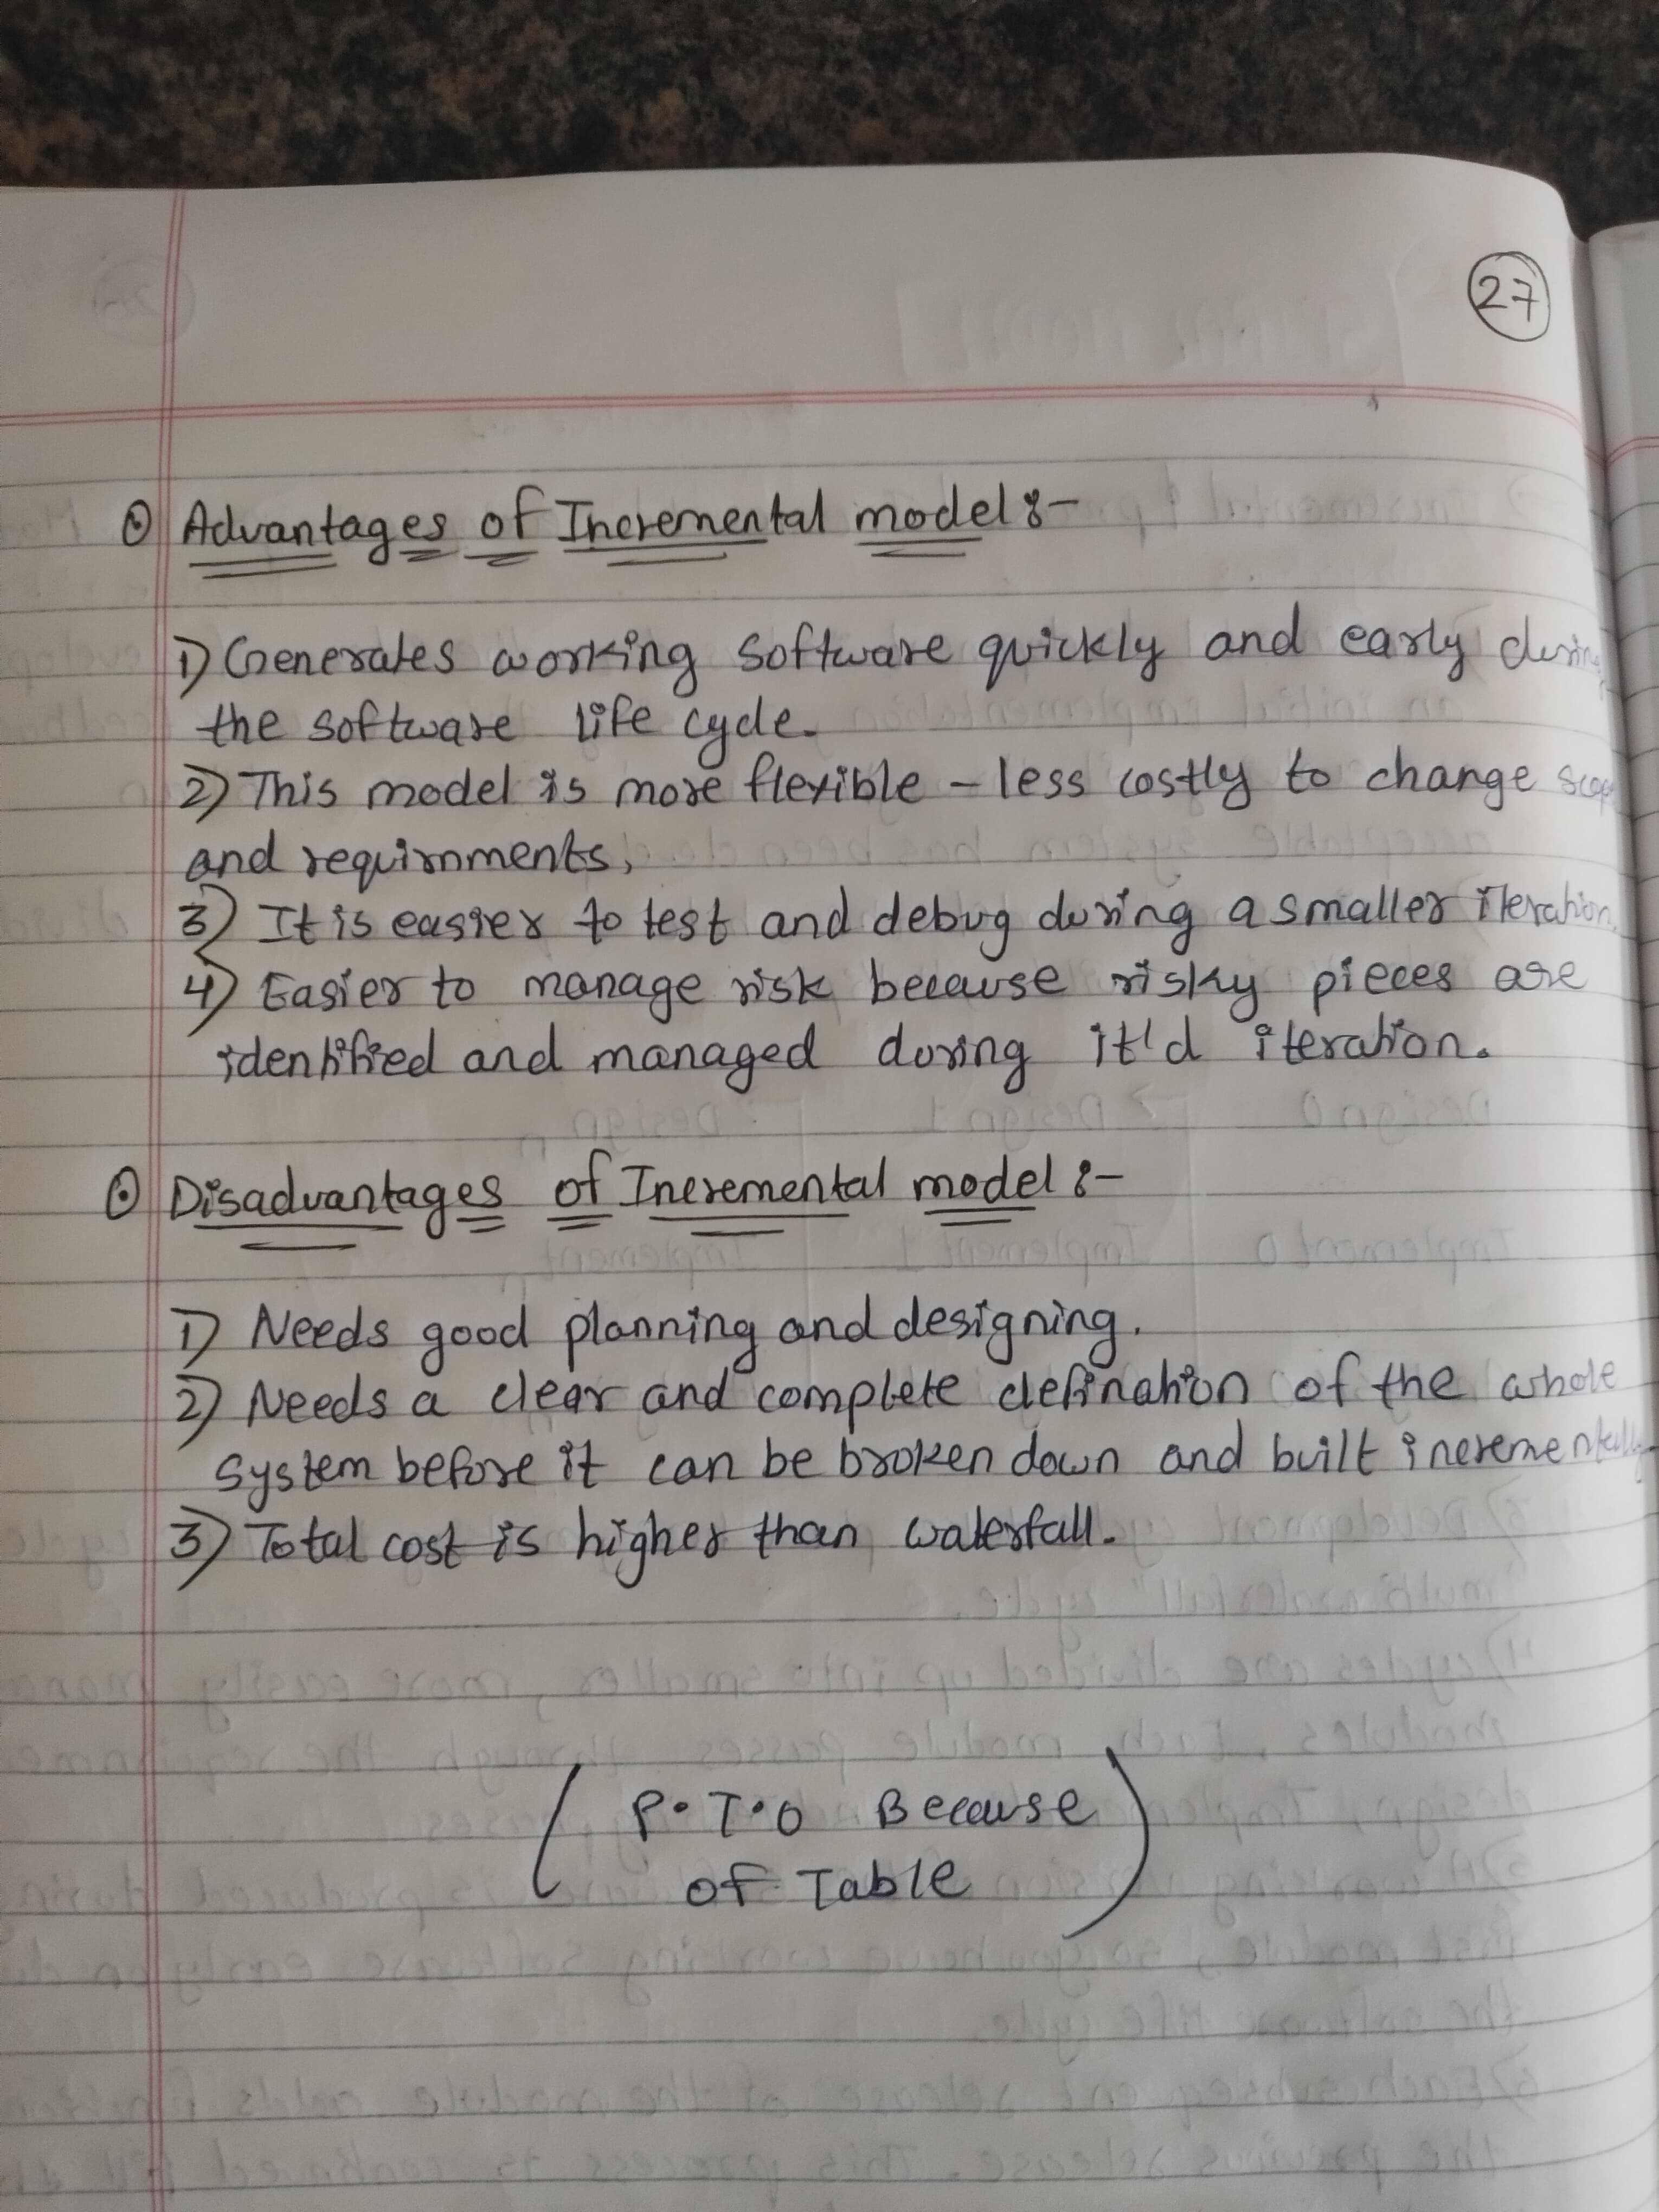 27
⊙ Advantages of Incremental model :-
1) Generates working software quickly and early during
the software life cycle.
2) This model is more flexible - less costly to change scope
and requirnments,
3) It is easier to test and debug during a smaller iteration.
4) Easier to manage risk because risky pieces are
identified and managed during it'd iteration.
⊙ Disadvantages of Incremental model :-
1) Needs good planning and designing.
2) Needs a clear and complete defination of the whole
system before it can be broken down and built incrementally
3) Total cost is higher than waterfall.
( P.T.O Because
of Table )